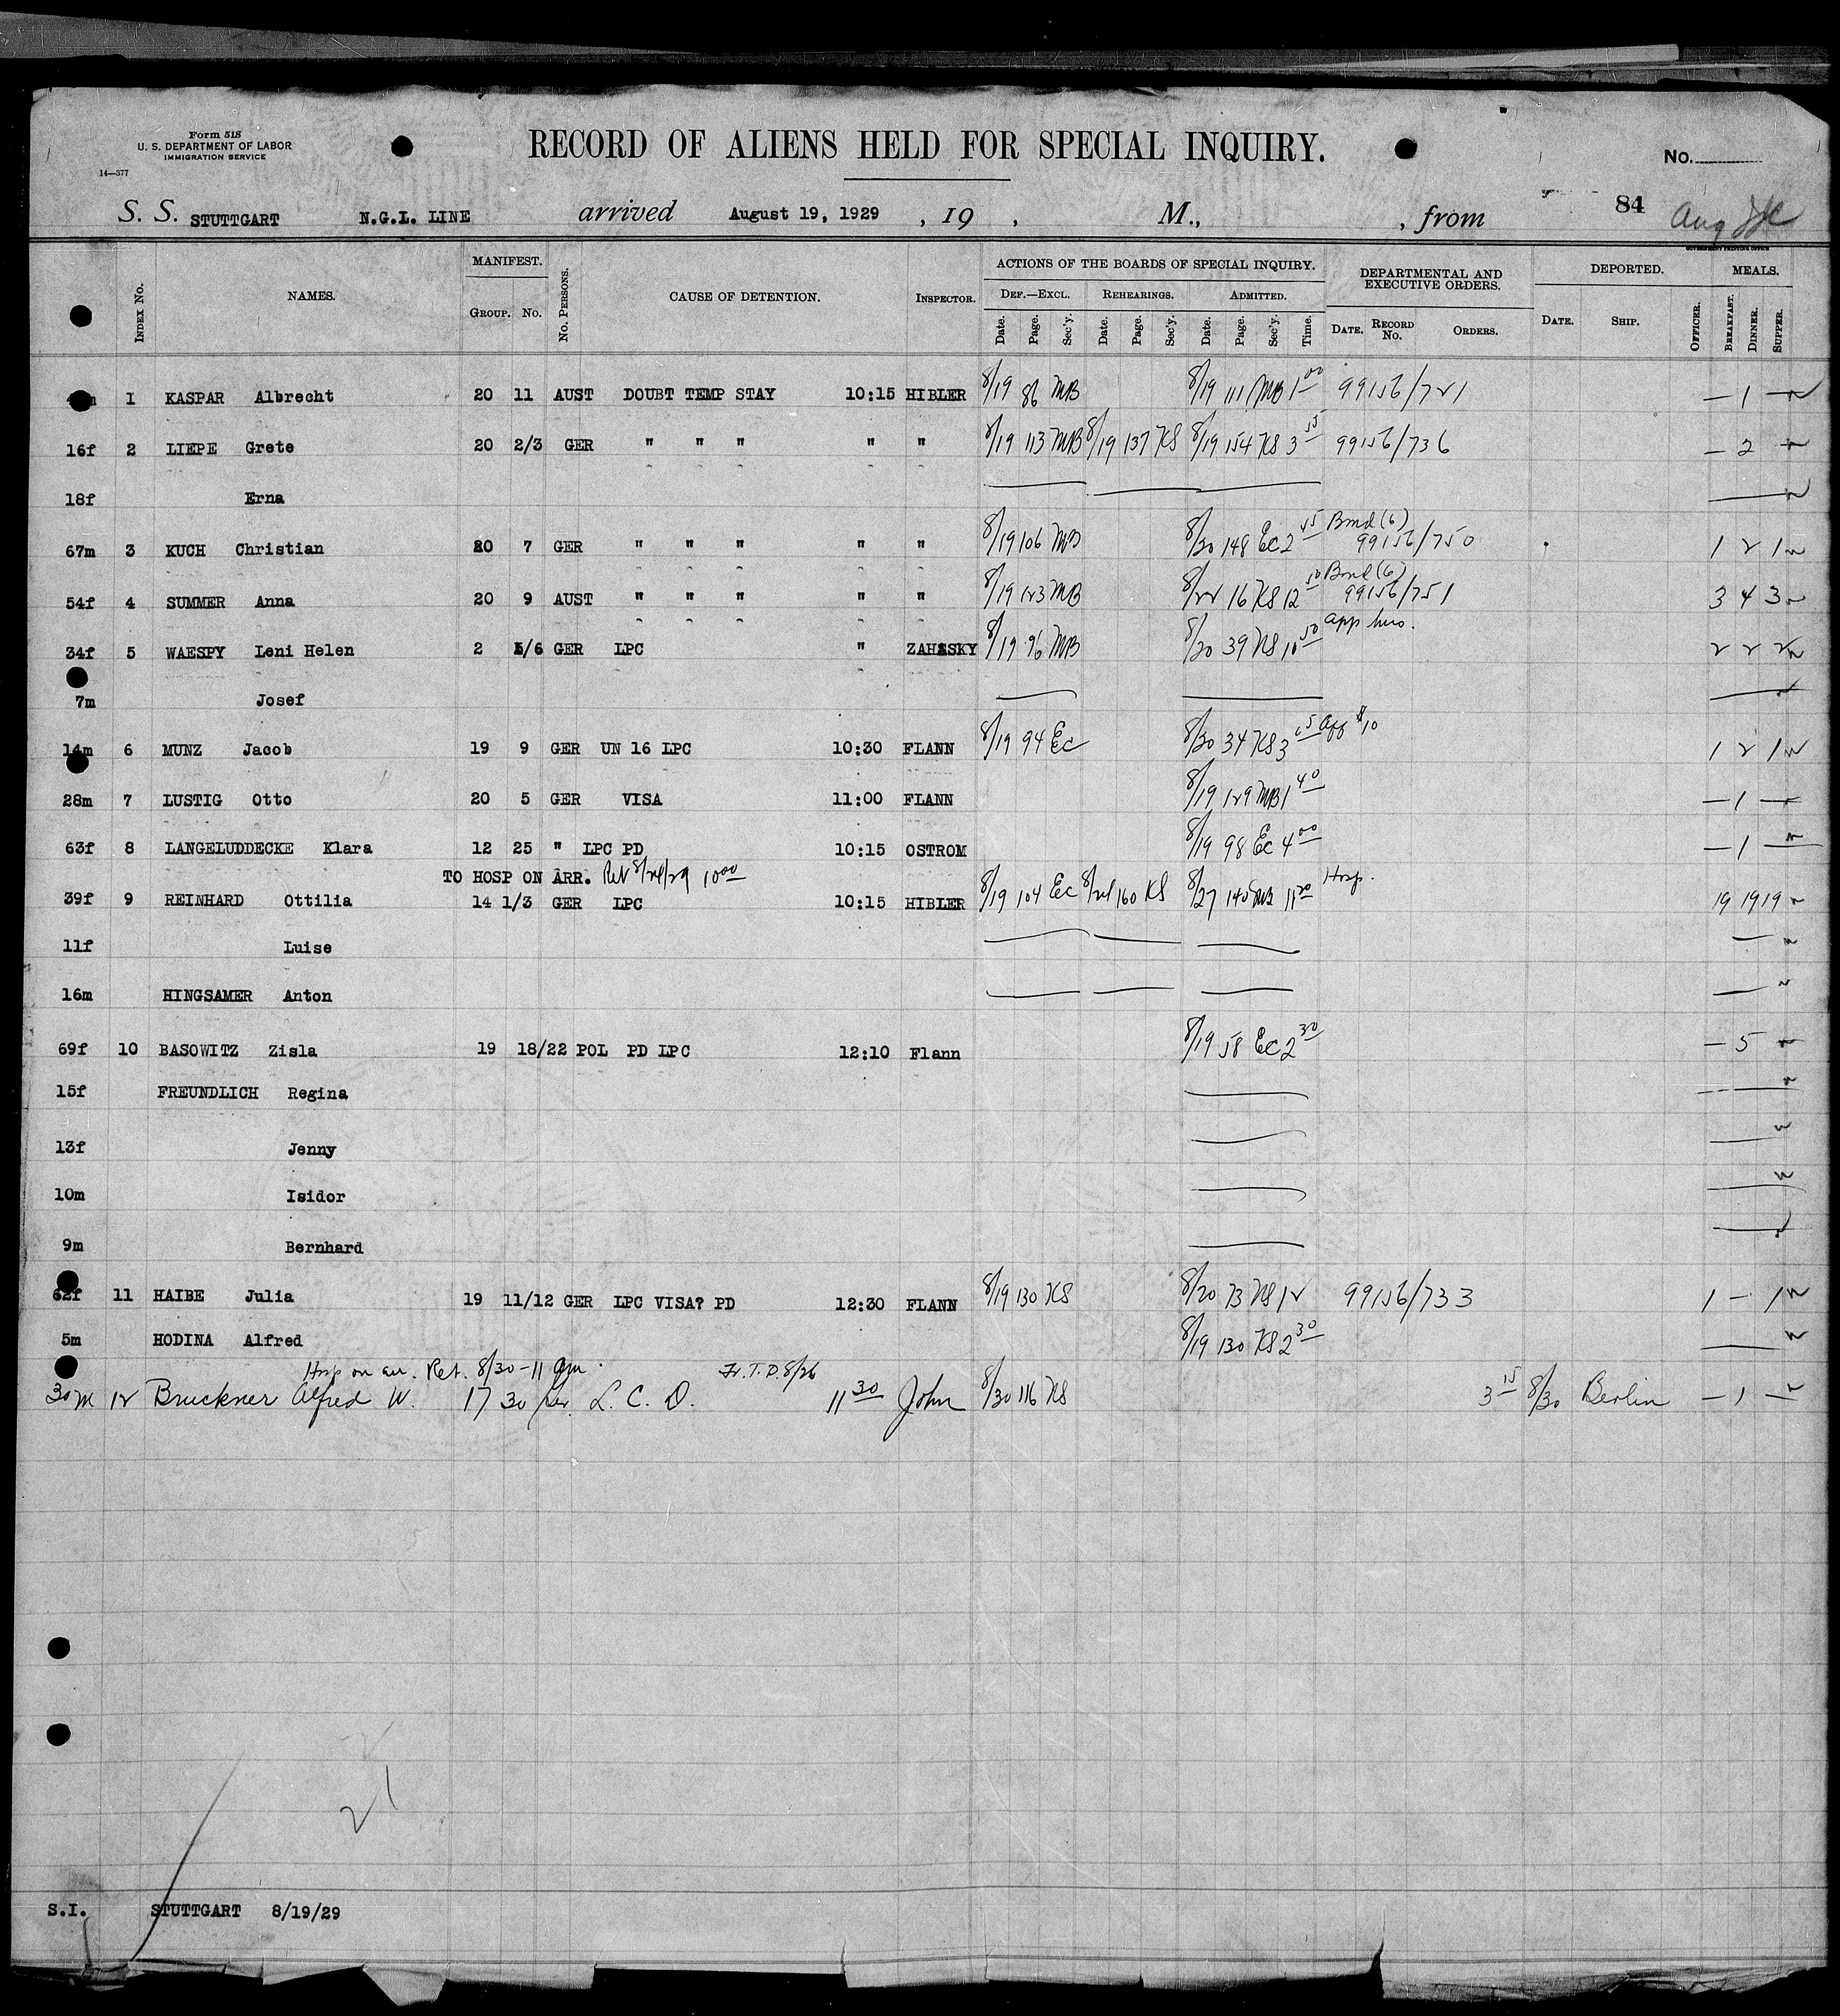 Form 518
U. S. DEPARTMENT OF LABOR
IMMIGRATION SERVICE
14—377
RECORD OF ALIENS HELD FOR SPECIAL INQUIRY.
No.
S. S. STUTTGART N.G.L. LINE arrived August 19, 1929 , 19 , M., , from 84 Aug
GOVERNMENT PRINTING OFFICE
Index No. NAMES. MANIFEST. Group. No. No. Persons. CAUSE OF DETENTION. Inspector. ACTIONS OF THE BOARDS OF SPECIAL INQUIRY. DEPARTMENTAL AND EXECUTIVE ORDERS. DEPORTED. MEALS.
Def.—Excl. Rehearings. Admitted.
Date. Page. Sec'y. Date. Page. Sec'y. Date. Page. Sec'y. Time. Date. Record No. Orders. Date. Ship. Officer. Breakfast. Dinner. Supper.
1 KASPAR Albrecht 20 11 AUST DOUBT TEMP STAY 10:15 HIBLER 8/19 86 MB 8/19 111 MB 1 00 99156/721 — 1 —
16f 2 LIEPE Grete 20 2/3 GER " " " " " 8/19 113 MB 8/19 137 KS 8/19 154 KS 3 55 99156/736 — 2 —
18f Erna
67m 3 KUCH Christian 20 7 GER " " " " " 8/19 106 MB 8/20 148 Ec 2 45 Bond (6) 99156/750 1 2 1
54f 4 SUMMER Anna 20 9 AUST " " " " " 8/19 123 MB 8/22 16 KS 12 50 Bond (6) 99156/751 3 4 3
34f 5 WAESPY Leni Helen 2 5/6 GER LPC " ZAHASKY 8/19 96 MB 8/20 39 KS 10 50 app hus. 2 2 2
7m Josef
14m 6 MUNZ Jacob 19 9 GER UN 16 LPC 10:30 FLANN 8/19 94 Ec 8/20 34 KS 3 15 aff $10 1 2 1
28m 7 LUSTIG Otto 20 5 GER VISA 11:00 FLANN 8/19 129 MB 1 40 — 1 —
63f 8 LANGELUDDECKE Klara 12 25 " LPC PD 10:15 OSTROM 8/19 98 Ec 4 00 — 1 —
TO HOSP ON ARR. Ret 8/24/29 10 00
39f 9 REINHARD Ottilia 14 1/3 GER LPC 10:15 HIBLER 8/19 104 Ec 8/24 160 KS 8/27 145 MB 11 20 Hosp. 19 19 19
11f Luise
16m HINGSAMER Anton
69f 10 BASOWITZ Zisla 19 18/22 POL PD LPC 12:10 Flann 8/19 58 Ec 2 30 — 5
15f FREUNDLICH Regina
13f Jenny
10m Isidor
9m Bernhard
62f 11 HAIBE Julia 19 11/12 GER LPC VISA? PD 12:30 FLANN 8/19 130 KS 8/20 73 KS 12 99156/733 1 — 1
5m HODINA Alfred 8/19 130 KS 2 30
Hosp on arr. Ret. 8/30-11 am. H.T.D. 8/26
30m 12 Bruckner Alfred W. 17 30 Ger. L. C. D. 11 30 John 8/30 116 KS 3 15 8/30 Berlin — 1 —
21
S.I. STUTTGART 8/19/29